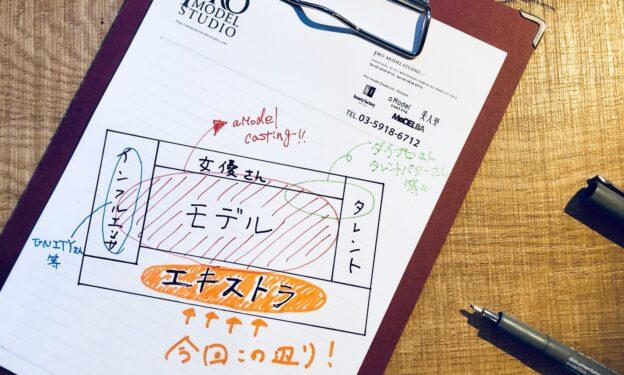 PRO
MODEL
STUDIO
PRO MODEL STUDIO
a Model
美人塾
MODELBA
TEL 03-5918-6712
aModel
casting!!
女優さん
インフルエンサー
モデル
タレント
タレントパワーさん
等々
UNITYさん
等
エキストラ
今回この辺り!